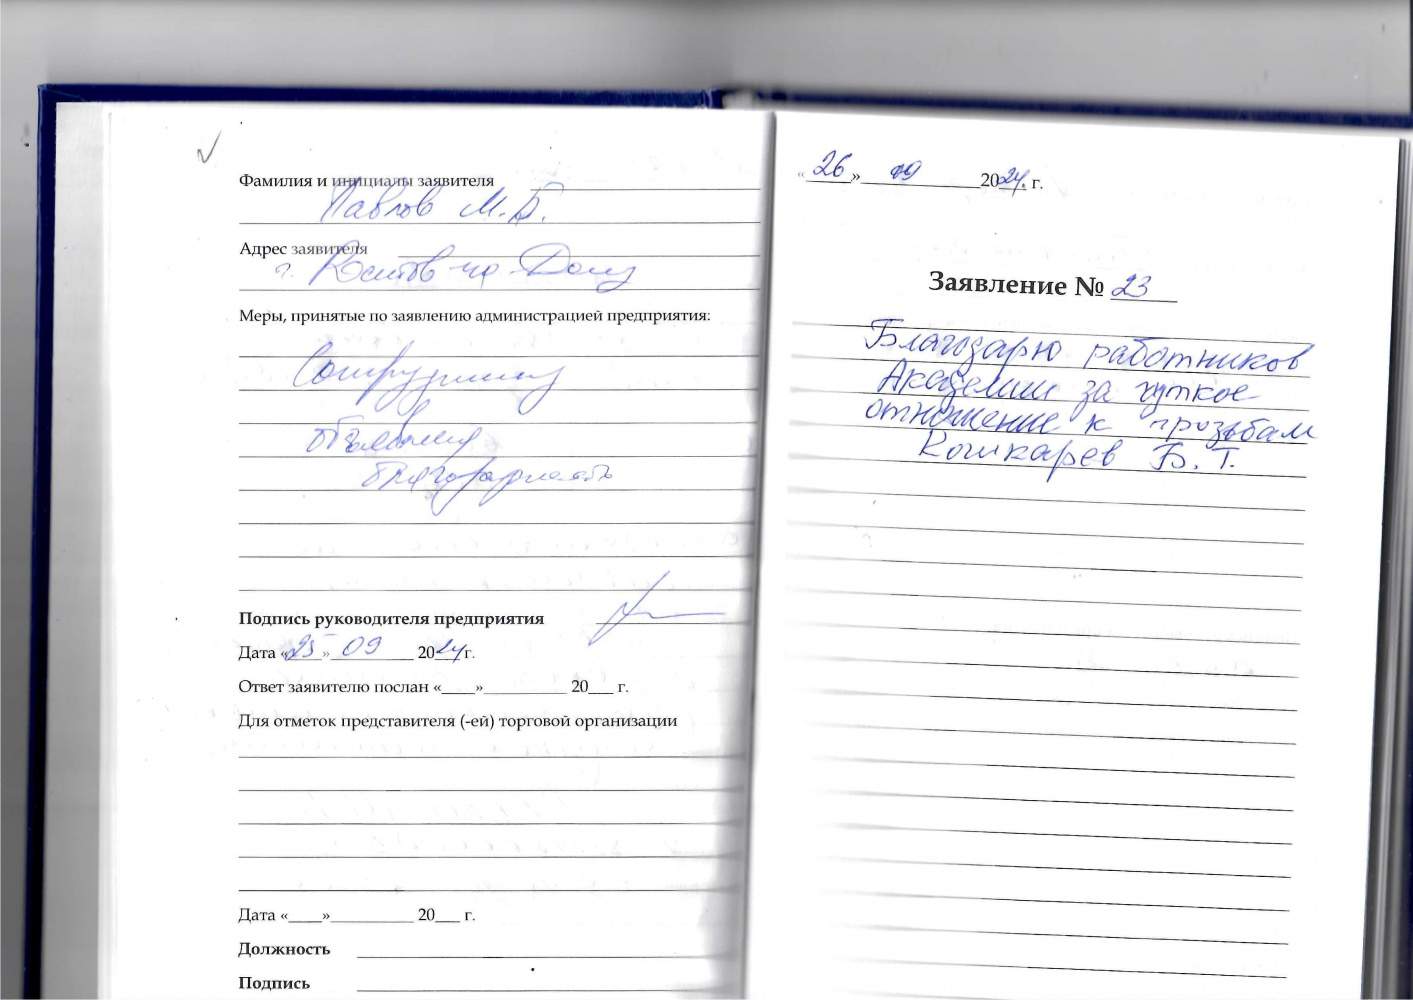 Фамилия и инициалы заявителя
Павлов М.Б.
Адрес заявителя
г. Ростов-на-Дону
Меры, принятые по заявлению администрацией предприятия:
Сотруднику
объявлена
благодарность
Подпись руководителя предприятия
Дата «25» 09 2024 г.
Ответ заявителю послан «____»__________ 20___ г.
Для отметок представителя (-ей) торговой организации
Дата «____»__________ 20___ г.
Должность
Подпись
«26» 09 2024. г.
Заявление № 23
Благодарю работников
Академии за чуткое
отношение к прозьбам
Кошкарев Б. Т.